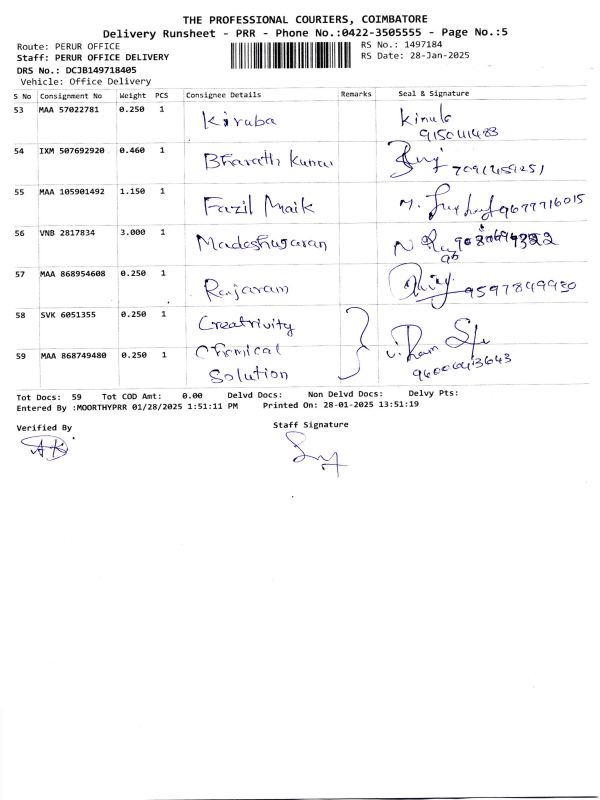 THE PROFESSIONAL COURIERS, COIMBATORE
Delivery Runsheet - PRR - Phone No.:0422-3505555 - Page No.:5
Route: PERUR OFFICE RS No.: 1497184
Staff: PERUR OFFICE DELIVERY RS Date: 28-Jan-2025
DRS No.: DCJB149718405
Vehicle: Office Delivery
S No Consignment No Weight PCS Consignee Details Remarks Seal & Signature
53 MAA 57022781 0.250 1 Kiruba
54 IXM 507692920 0.460 1 Bharath Kumar
55 MAA 105901492 1.150 1 Fazil 9677716015
56 VNB 2817834 3.000 1 Madeshwaran
57 MAA 868954608 0.250 1 Rajaram 9597849930
58 SVK 6051355 0.250 1 Creativity
59 MAA 868749480 0.250 1 Chemical
Solution
Tot Docs: 59 Tot COD Amt: 0.00 Delvd Docs: Non Delvd Docs: Delvy Pts:
Entered By :MOORTHYPRR 01/28/2025 1:51:11 PM Printed On: 28-01-2025 13:51:19
Verified By Staff Signature